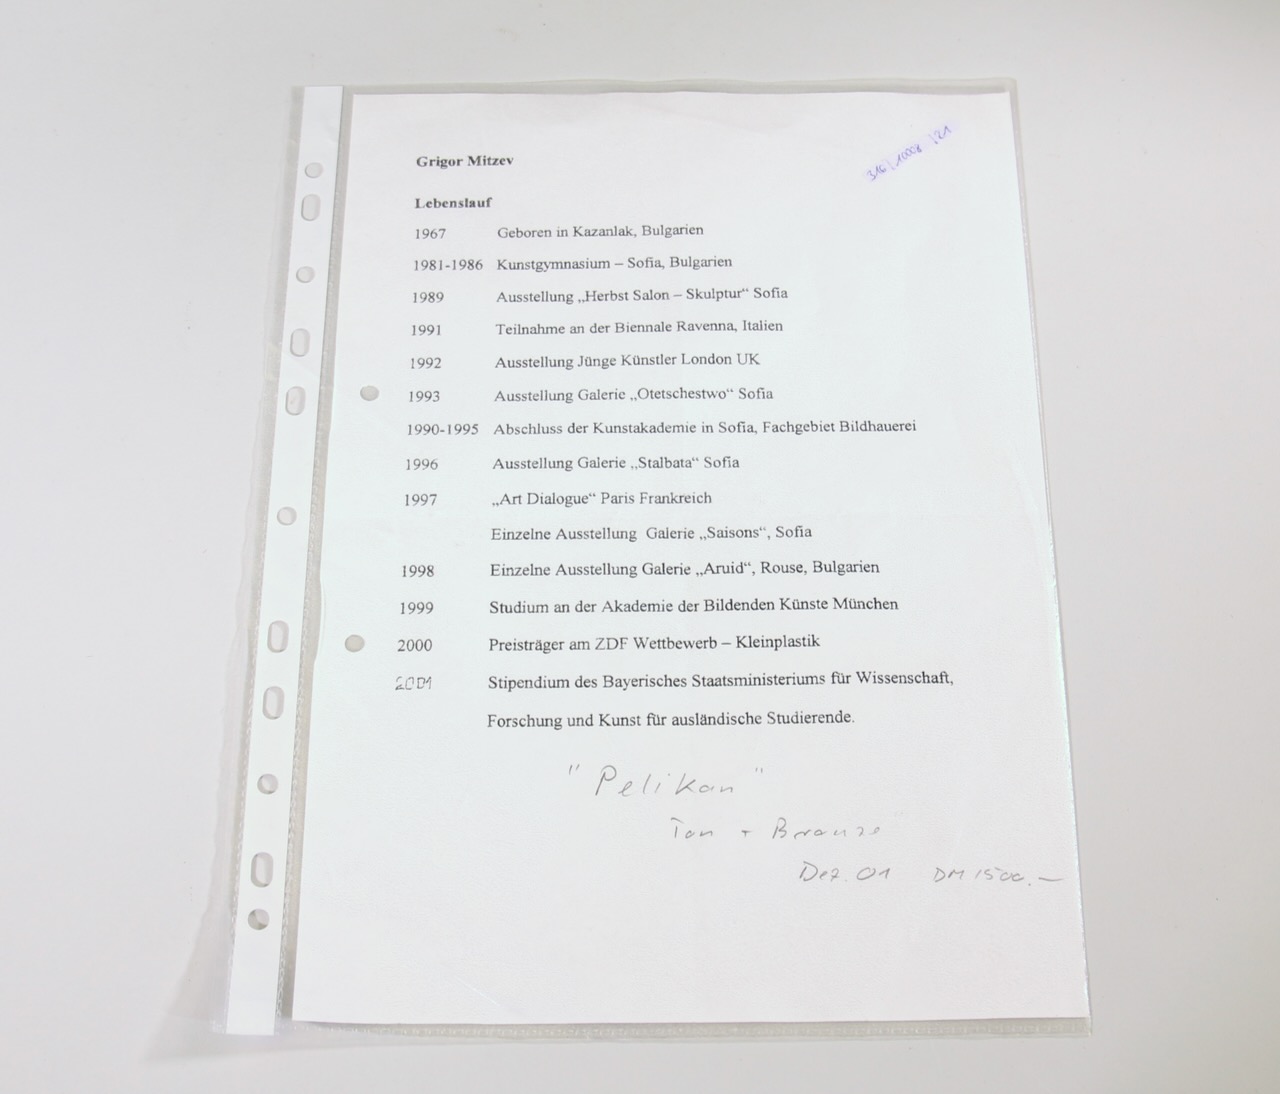 316\10008\21
Grigor Mitzev
Lebenslauf
1967 Geboren in Kazanlak, Bulgarien
1981-1986 Kunstgymnasium – Sofia, Bulgarien
1989 Ausstellung „Herbst Salon – Skulptur“ Sofia
1991 Teilnahme an der Biennale Ravenna, Italien
1992 Ausstellung Jünge Künstler London UK
1993 Ausstellung Galerie „Otetschestwo“ Sofia
1990-1995 Abschluss der Kunstakademie in Sofia, Fachgebiet Bildhauerei
1996 Ausstellung Galerie „Stalbata“ Sofia
1997 „Art Dialogue“ Paris Frankreich
Einzelne Ausstellung Galerie „Saisons“, Sofia
1998 Einzelne Ausstellung Galerie „Aruid“, Rouse, Bulgarien
1999 Studium an der Akademie der Bildenden Künste München
2000 Preisträger am ZDF Wettbewerb – Kleinplastik
2001 Stipendium des Bayerisches Staatsministeriums für Wissenschaft,
Forschung und Kunst für ausländische Studierende.
"Pelikan"
Ton + Bronze
Dez. 01 DM 1500.—